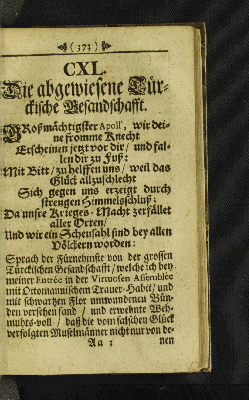 ( 373 )
CXL.
Die abgewiesene Tür-
ckische Gesandschafft.
GRoßmächtigster Apoll', wir dei-
ne fromme Knecht
Erscheinen jetzt vor dir / und fal-
len dir zu Fuß:
Mit Bitt / zu helffen uns / weil das
Glück allzuschlecht
Sich gegen uns erzeigt durch
strengen Himmelsschluß;
Da unsre Krieges-Macht zerfället
aller Orten /
Und wir ein Scheusahl sind bey allen
Völckern worden:
Sprach der Fürnehmste von der grossen
Türckischen Gesandschafft / welche ich bey
meiner Entrée in der Virtuosen Assemblée
mit Ottomannischem Trauer-Habit / und
mit schwartzen Flor umwundenen Bün-
den versehen fand / und erwehnte Weh-
muhts-voll / daß die vom falschen Glück
verfolgten Muselmänner nicht nur von de-
Aa 3 nen